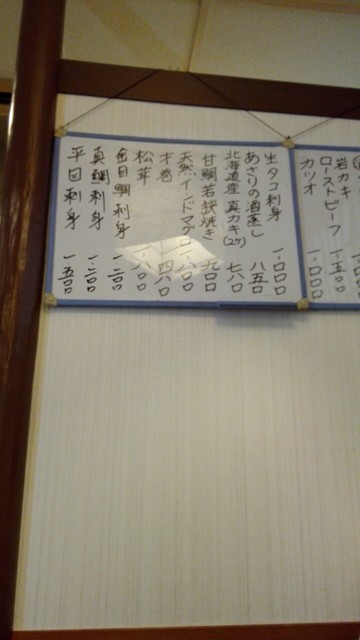 岩カキ 一、五〇〇
ローストビーフ
カツオ 一、〇〇〇
生タコ刺身 一、〇〇〇
あさりの酒蒸し 八五〇
北海道産 真カキ(2ケ) 七八〇
甘鯛若狭焼き 九〇〇
天然インドマグロ 一、八〇〇
才巻 四八〇
松茸 一、八〇〇
金目鯛刺身 一、二〇〇
真鯛刺身 一、二〇〇
平目刺身 一、五〇〇